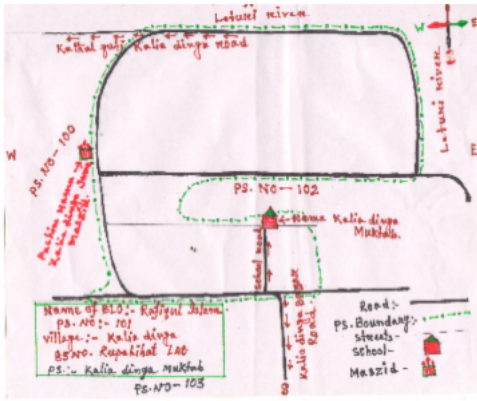 Letuki river
W
E
Kathal guri Kalia dinga road
Letuki river
W
PS. NO - 100
Kalia dinga
PS. NO - 102
Nama Kalia dinga
Muktab
School Road
Kalia dinga
Road
Name of BLO:- Rafiqul Islam
PS. NO:- 101
village:- Kalia dinga
BS NO. Rupahihat LAC
PS:- Kalia dinga Muktab
PS. NO - 103
Road:-
PS. Boundary:-
streets-
School-
Maszid-